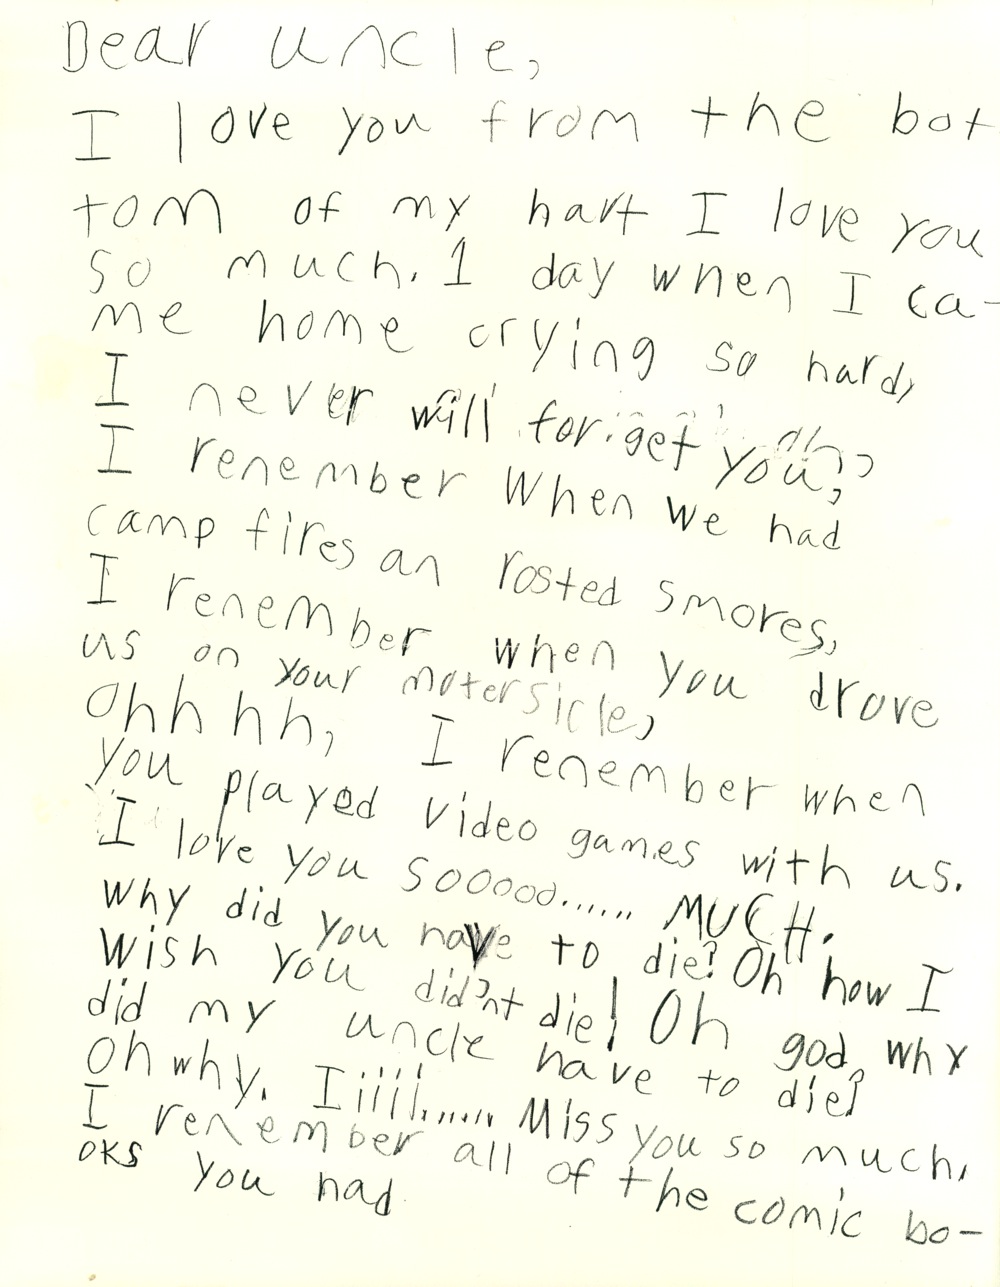 Dear uncle,
I love you from the bot
tom of my hart I love you
so much. 1 day when I ca-
me home crying so hard,
I never will forget you,
I renember when we had
camp fires an rosted smores,
I renember when you drove
us on your motersicle,
Ohhhh, I renember when
you played video games with us.
I love you sooooo...... MUCH.
why did you have to die? Oh how I
wish you did'nt die! Oh god why
did my uncle have to die?
oh why. Iiiii....... Miss you so much,
I renember all of the comic bo-
oks you had